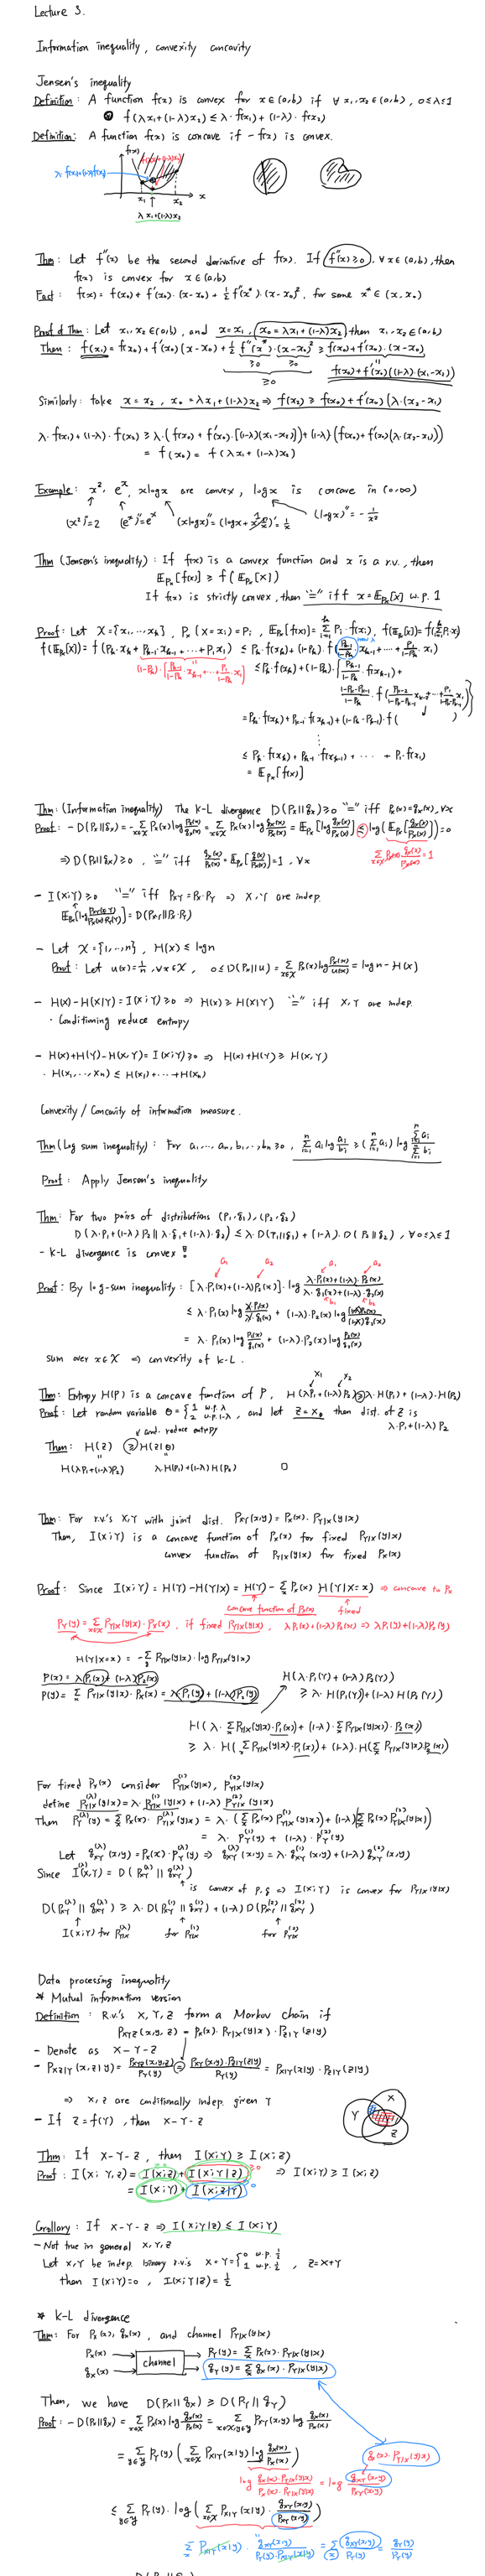 Lecture 3.
Information inequality, convexity concavity
Jensen's inequality
Definition: A function f(x) is convex for x∈(a,b) if ∀ x₁,x₂∈(a,b), 0≤λ≤1
f(λx₁+(1-λ)x₂) ≤ λ·f(x₁)+(1-λ)·f(x₂)
Definition: A function f(x) is concave if -f(x) is convex.
f(x)
x₁ x₂ x
λx₁+(1-λ)x₂
Thm: Let f''(x) be the second derivative of f(x). If f''(x)≥0, ∀x∈(a,b), then
f(x) is convex for x∈(a,b)
Fact: f(x) = f(x₀)+f'(x₀)·(x-x₀)+½f''(x*)·(x-x₀)², for some x*∈(x,x₀)
Proof of Thm: Let x₁,x₂∈(a,b), and x=x₁, x₀=λx₁+(1-λ)x₂, then x₁,x₂∈(a,b)
Then: f(x₁)=f(x₀)+f'(x₀)(x-x₀)+½f''(x*)·(x-x₀)² ≥ f(x₀)+f'(x₀)·(x-x₀)
≥0 ≥0
≥0
f(x₀)+f'(x₀)((1-λ)·(x₁-x₂))
Similarly: take x=x₂, x₀=λx₁+(1-λ)x₂ ⇒ f(x₂) ≥ f(x₀)+f'(x₀)(λ·(x₂-x₁)
λ·f(x₁)+(1-λ)·f(x₂) ≥ λ·(f(x₀)+f'(x₀)·[(1-λ)(x₁-x₂)])+(1-λ)·(f(x₀)+f'(x₀)(λ·(x₂-x₁)))
= f(x₀) = f(λx₁+(1-λ)x₂)
Example: x², eˣ, xlogx are convex, logx is concave in (0,∞)
(x²)''=2 (eˣ)''=eˣ (xlogx)''=(logx+x·1/x)'=1/x (logx)''=-1/x²
Thm (Jensen's inequality): If f(x) is a convex function and x is a r.v., then
E_Px[f(x)] ≥ f(E_Px[x])
If f(x) is strictly convex, then "=" iff x=E_Px[x] w.p. 1
Proof: Let X={x₁,...,x_k}, P_x(X=x_i)=P_i, E_Px[f(x)]=Σ P_i·f(x_i), f(E_Px[x])=f(Σ P_i·x_i)
= E_Px[f(x)]
Thm: (Information inequality) The K-L divergence D(Px||qx)≥0 "=" iff Px(x)=qx(x), ∀x
Proof: -D(Px||qx) = -Σ Px(x)log Px(x)/qx(x) = Σ Px(x)log qx(x)/Px(x) = E_Px[log qx(x)/Px(x)] ≤ log(E_Px[qx(x)/Px(x)])=0
⇒ D(Px||qx)≥0, "=" iff qx(x)/Px(x) = E_Px[qx(x)/Px(x)]=1, ∀x
- I(X;Y)≥0 "=" iff P_XY=Px·Py ⇒ X,Y are indep.
- Let X={1,...,n}, H(x) ≤ logn
Proof: Let u(x)=1/n, ∀x∈X, 0≤D(Px||u)=Σ Px(x)log Px(x)/u(x) = logn - H(x)
- H(x)-H(x|Y)=I(x;Y)≥0 ⇒ H(x)≥H(x|Y) "=" iff X,Y are indep.
· Conditioning reduce entropy
- H(x)+H(Y)-H(X,Y)=I(x;Y)≥0 ⇒ H(x)+H(Y) ≥ H(X,Y)
· H(x₁,...,Xn) ≤ H(x₁)+···+H(xn)
Convexity / Concavity of information measure.
Thm (Log sum inequality): For a₁,...,an,b₁,...,bn≥0, Σ a_i log a_i/b_i ≥ (Σ a_i) log Σa_i/Σb_i
Proof: Apply Jensen's inequality
Thm: For two pairs of distributions (P₁,q₁),(P₂,q₂)
D(λ·P₁+(1-λ)P₂||λ·q₁+(1-λ)·q₂) ≤ λ·D(P₁||q₁)+(1-λ)·D(P₂||q₂), ∀0≤λ≤1
- K-L divergence is convex!
Proof: By log-sum inequality: [λ·P₁(x)+(1-λ)P₂(x)]·log λ·P₁(x)+(1-λ)·P₂(x)/λ·q₁(x)+(1-λ)·q₂(x)
≤ λ·P₁(x)log λ·P₁(x)/λ·q₁(x) + (1-λ)·P₂(x)log (1-λ)P₂(x)/(1-λ)q₂(x)
= λ·P₁(x)log P₁(x)/q₁(x) + (1-λ)·P₂(x)log P₂(x)/q₂(x)
sum over x∈X ⇒ convexity of k-L.
Thm: Entropy H(P) is a concave function of P, H(λP₁+(1-λ)P₂)≥λ·H(P₁)+(1-λ)·H(P₂)
Proof: Let random variable θ={1 w.p. λ 2 w.p. 1-λ, and let Z=X_θ then dist. of Z is
λ·P₁+(1-λ)P₂
cond. reduce entropy
Then: H(Z) ≥ H(Z|θ)
H(λP₁+(1-λ)P₂) λ·H(P₁)+(1-λ)H(P₂)
Thm: For r.v.'s X,Y with joint dist. P_XY(x,y)=Px(x)·P_Y|X(y|x)
Then, I(X;Y) is a concave function of Px(x) for fixed P_Y|X(y|x)
convex function of P_Y|X(y|x) for fixed Px(x)
Proof: Since I(X;Y)=H(Y)-H(Y|X)=H(Y)-Σ Px(x) H(Y|X=x) ⇒ concave to Px
concave function of Px(x) fixed
P_Y(y)=Σ P_Y|X(y|x)·Px(x), if fixed P_Y|X(y|x), λP₁(x)+(1-λ)P₂(x) ⇒ λP₁(y)+(1-λ)P₂(y)
H(Y|X=x) = -Σ P_Y|X(y|x)·log P_Y|X(y|x)
P(x)=λP₁(x)+(1-λ)P₂(x)
P(y)=Σ P_Y|X(y|x)·Px(x)=λ·P₁(y)+(1-λ)P₂(y)
H(λ·P₁(Y)+(1-λ)P₂(Y))
≥ λ·H(P₁(Y))+(1-λ)H(P₂(Y))
H(λ·Σ P_Y|X(y|x)·P₁(x)+(1-λ)·Σ P_Y|X(y|x)·P₂(x))
≥ λ·H(Σ P_Y|X(y|x)·P₁(x))+(1-λ)·H(Σ P_Y|X(y|x)P₂(x))
For fixed Px(x) consider P⁽¹⁾_Y|X(y|x), P⁽²⁾_Y|X(y|x)
define P⁽λ⁾_Y|X(y|x)=λ·P⁽¹⁾_Y|X(y|x)+(1-λ)P⁽²⁾_Y|X(y|x)
Then P⁽λ⁾_Y(y)=Σ Px(x)·P⁽λ⁾_Y|X(y|x)=λ·(Σ Px(x)P⁽¹⁾_Y|X(y|x))+(1-λ)(Σ Px(x)P⁽²⁾_Y|X(y|x))
= λ·P⁽¹⁾_Y(y)+(1-λ)·P⁽²⁾_Y(y)
Let q⁽λ⁾_XY(x,y)=Px(x)·P⁽λ⁾_Y(y) ⇒ q⁽λ⁾_XY(x,y)=λ·q⁽¹⁾_XY(x,y)+(1-λ)q⁽²⁾_XY(x,y)
Since I(X;Y)=D(P⁽λ⁾_XY||q⁽λ⁾_XY)
is convex of p,q ⇒ I(X;Y) is convex for P_Y|X(y|x)
D(P⁽λ⁾_XY||q⁽λ⁾_XY) ≥ λ·D(P⁽¹⁾_XY||q⁽¹⁾_XY)+(1-λ)D(P⁽²⁾_XY||q⁽²⁾_XY)
I(X;Y) for P⁽λ⁾_Y|X for P⁽¹⁾_Y|X for P⁽²⁾_Y|X
Data processing inequality
* Mutual information version
Definition: R.v.'s X,Y,Z form a Markov chain if
P_XYZ(x,y,z)=Px(x)·P_Y|X(y|x)·P_Z|Y(z|y)
- Denote as X-Y-Z
- P_XZ|Y(x,z|y)=P_XYZ(x,y,z)/P_Y(y)=P_XY(x,y)·P_Z|Y(z|y)/P_Y(y)=P_X|Y(x|y)·P_Z|Y(z|y)
⇒ X,Z are conditionally indep. given Y
- If Z=f(Y), then X-Y-Z
X
Y
Z
Thm: If X-Y-Z, then I(X;Y) ≥ I(X;Z)
Proof: I(X;Y,Z)=I(X;Z)+I(X;Y|Z) ⇒ I(X;Y) ≥ I(X;Z)
= I(X;Y)+I(X;Z|Y)
Corollary: If X-Y-Z ⇒ I(X;Y|Z) ≤ I(X;Y)
- Not true in general X,Y,Z
Let X,Y be indep. binary r.v.'s X,Y={0 w.p. ½ 1 w.p. ½, Z=X+Y
then I(X;Y)=0, I(X;Y|Z)=½
* K-L divergence
Thm: For Px(x), qx(x), and channel P_Y|X(y|x)
Px(x)
qx(x)
channel
P_Y(y)=Σ Px(x)·P_Y|X(y|x)
q_Y(y)=Σ qx(x)·P_Y|X(y|x)
Then, we have D(Px||qx) ≥ D(P_Y||q_Y)
Proof: -D(Px||qx)=Σ Px(x)log qx(x)/Px(x)=Σ P_XY(x,y)log qx(x)/Px(x)
= Σ P_Y(y)(Σ P_X|Y(x|y)log qx(x)/Px(x))
qx(x)·P_Y|X(y|x)
log qx(x)·P_Y|X(y|x)/Px(x)·P_Y|X(y|x) = log q_XY(x,y)/P_XY(x,y)
≤ Σ P_Y(y)·log(Σ P_X|Y(x|y)·q_XY(x,y)/P_XY(x,y))
Σ P_X|Y(x|y)·q_XY(x,y)/P_Y(y)·P_X|Y(x|y)=Σ q_XY(x,y)/P_Y(y)=q_Y(y)/P_Y(y)